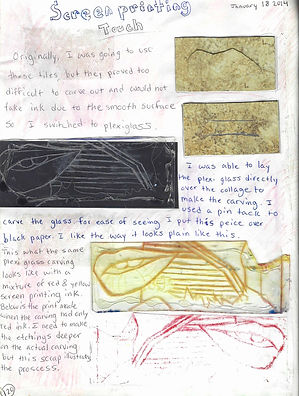 Screenprinting
January 18 2014
Touch
Originally, I was going to use
those tiles but they proved too
difficult to carve out and would not
take ink due to the smooth surface
So I switched to plexiglass.
I was able to lay
the plexi glass directly
over the collage to
make the carving. I
used a pin tack to
carve the glass. for ease of seeing I put this peice over
black paper. I like the way it looks plain like this.
This what the same
plexi glass carving
looks like with a
mixture of red & yellow
screen printing ink.
Below is the print made
when the carving had only
red ink. I need to make
the etchings deeper
on the actual carving
but this scrap illustrates
the proccess.